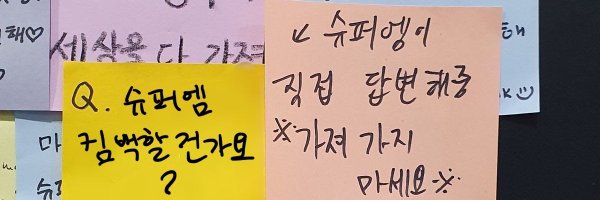 해♡
세상을 다 가져
Q. 슈퍼엠
컴백할 건가요
?
↙ 슈퍼엠이
직접 답변해줌
※가져 가지
마세요※
마
슈
해
K☺